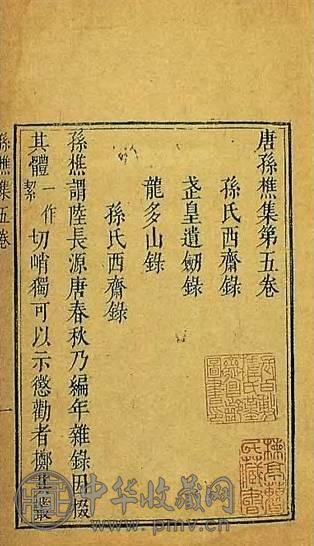 唐孫樵集第五卷
孫氏西齋錄
龍多山錄
孫氏西齋錄
孫樵謂陸長源唐春秋乃編年雜錄因掇
其體
潔
一作
切峭獨可以示懲勸者擲其叢
孫樵集五卷
一
中华收藏网
www.pmv.cn